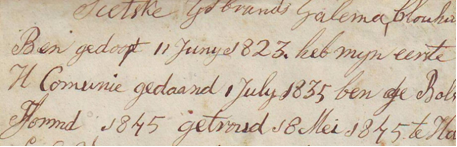 Sietske IJsbrands Galema, Blouhu
Ben gedoopt 11 Juny 1823. heb myn eerste
H Comunie gedaand 1 July 1835 ben ge Bols
Formd 1845 getroud 18 Mei 1845 te